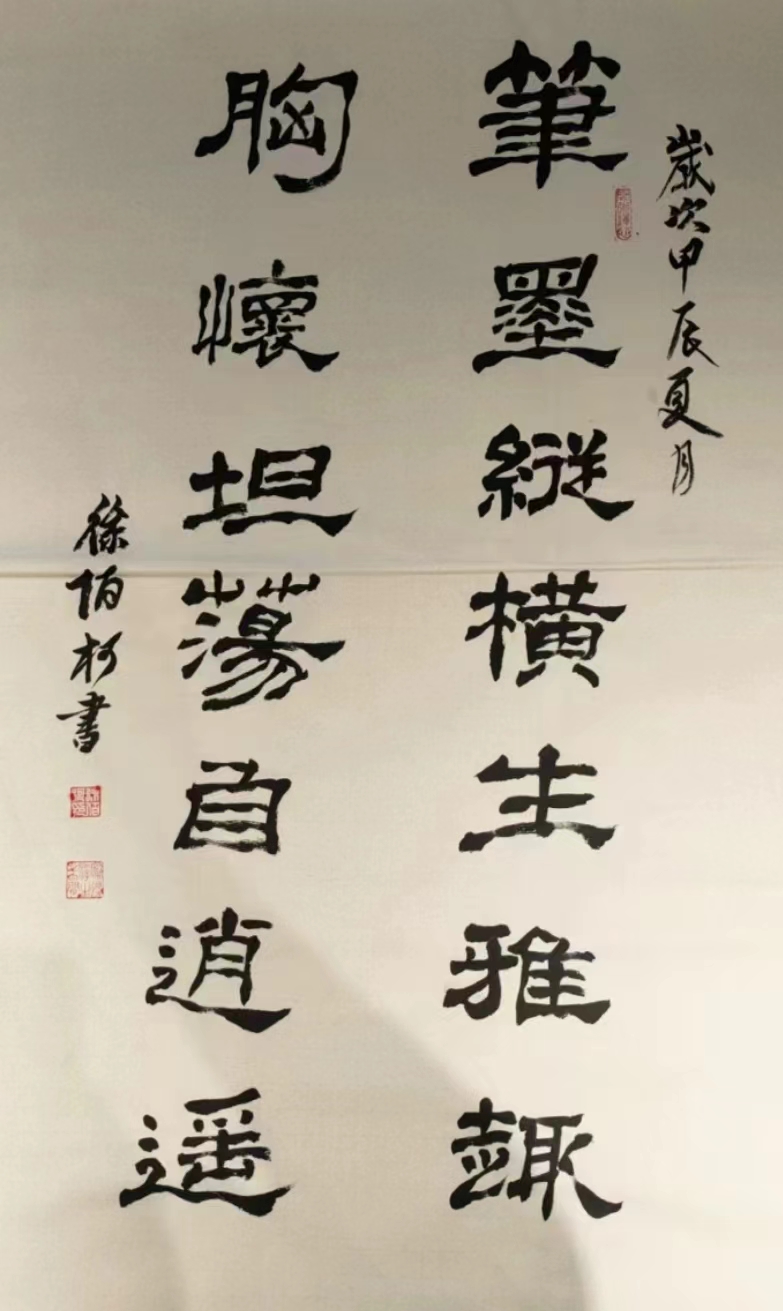 歲次甲辰夏月
筆墨縱橫生雅趣
胸懷坦蕩自逍遥
徐栢柯書